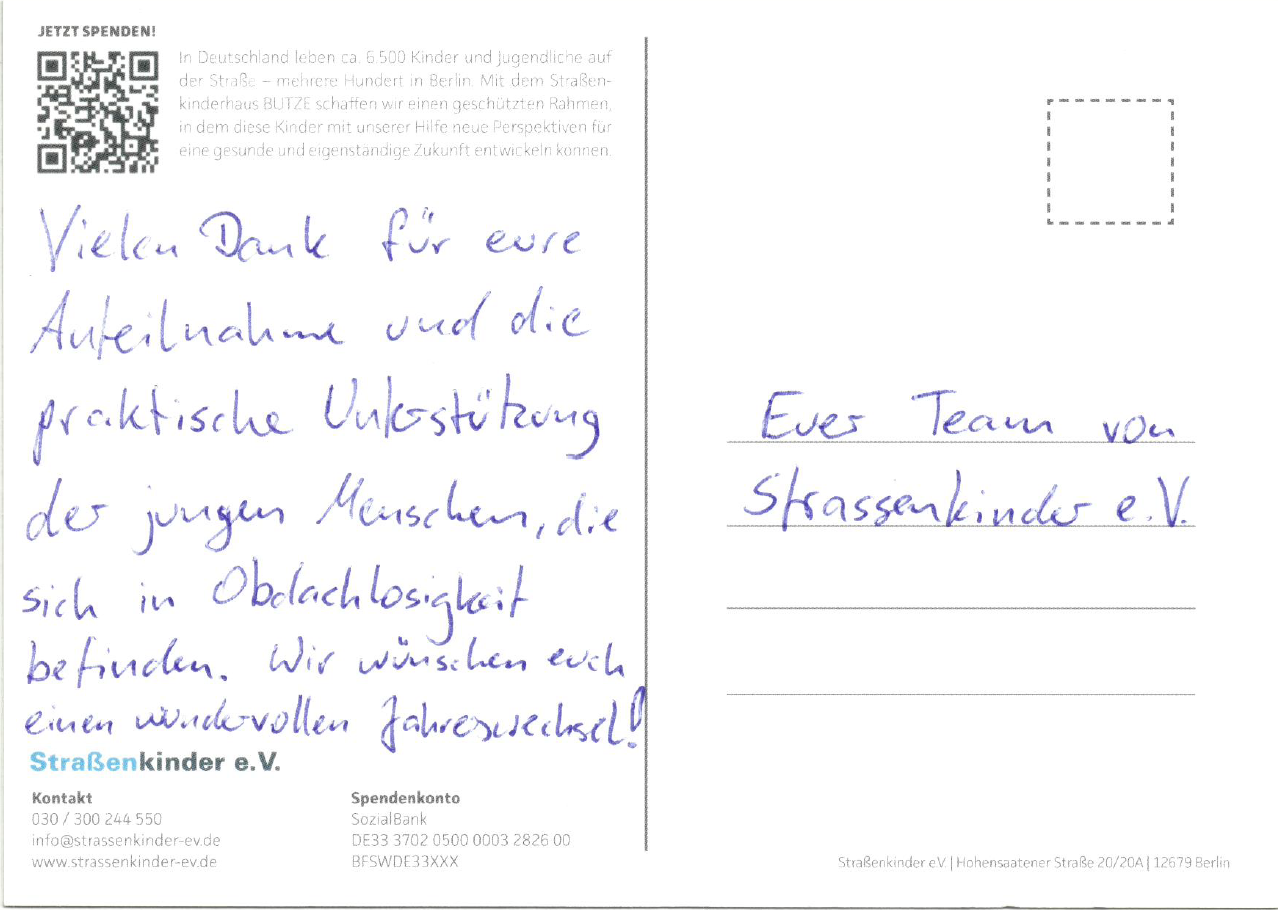 JETZT SPENDEN!
In Deutschland leben ca. 6.500 Kinder und Jugendliche auf
der Straße – mehrere Hundert in Berlin. Mit dem Straßen-
kinderhaus BUTZE schaffen wir einen geschützten Rahmen,
in dem diese Kinder mit unserer Hilfe neue Perspektiven für
eine gesunde und eigenständige Zukunft entwickeln können.
Vielen Dank für eure
Anteilnahme und die
praktische Unterstützung
der jungen Menschen, die
sich in Obdachlosigkeit
befinden. Wir wünschen euch
einen wundervollen Jahreswechsel!
Straßenkinder e.V.
Kontakt
030 / 300 244 550
info@strassenkinder-ev.de
www.strassenkinder-ev.de
Spendenkonto
SozialBank
DE33 3702 0500 0003 2826 00
BFSWDE33XXX
Euer Team von
Strassenkinder e.V.
Straßenkinder e.V. | Hohensaatener Straße 20/20A | 12679 Berlin